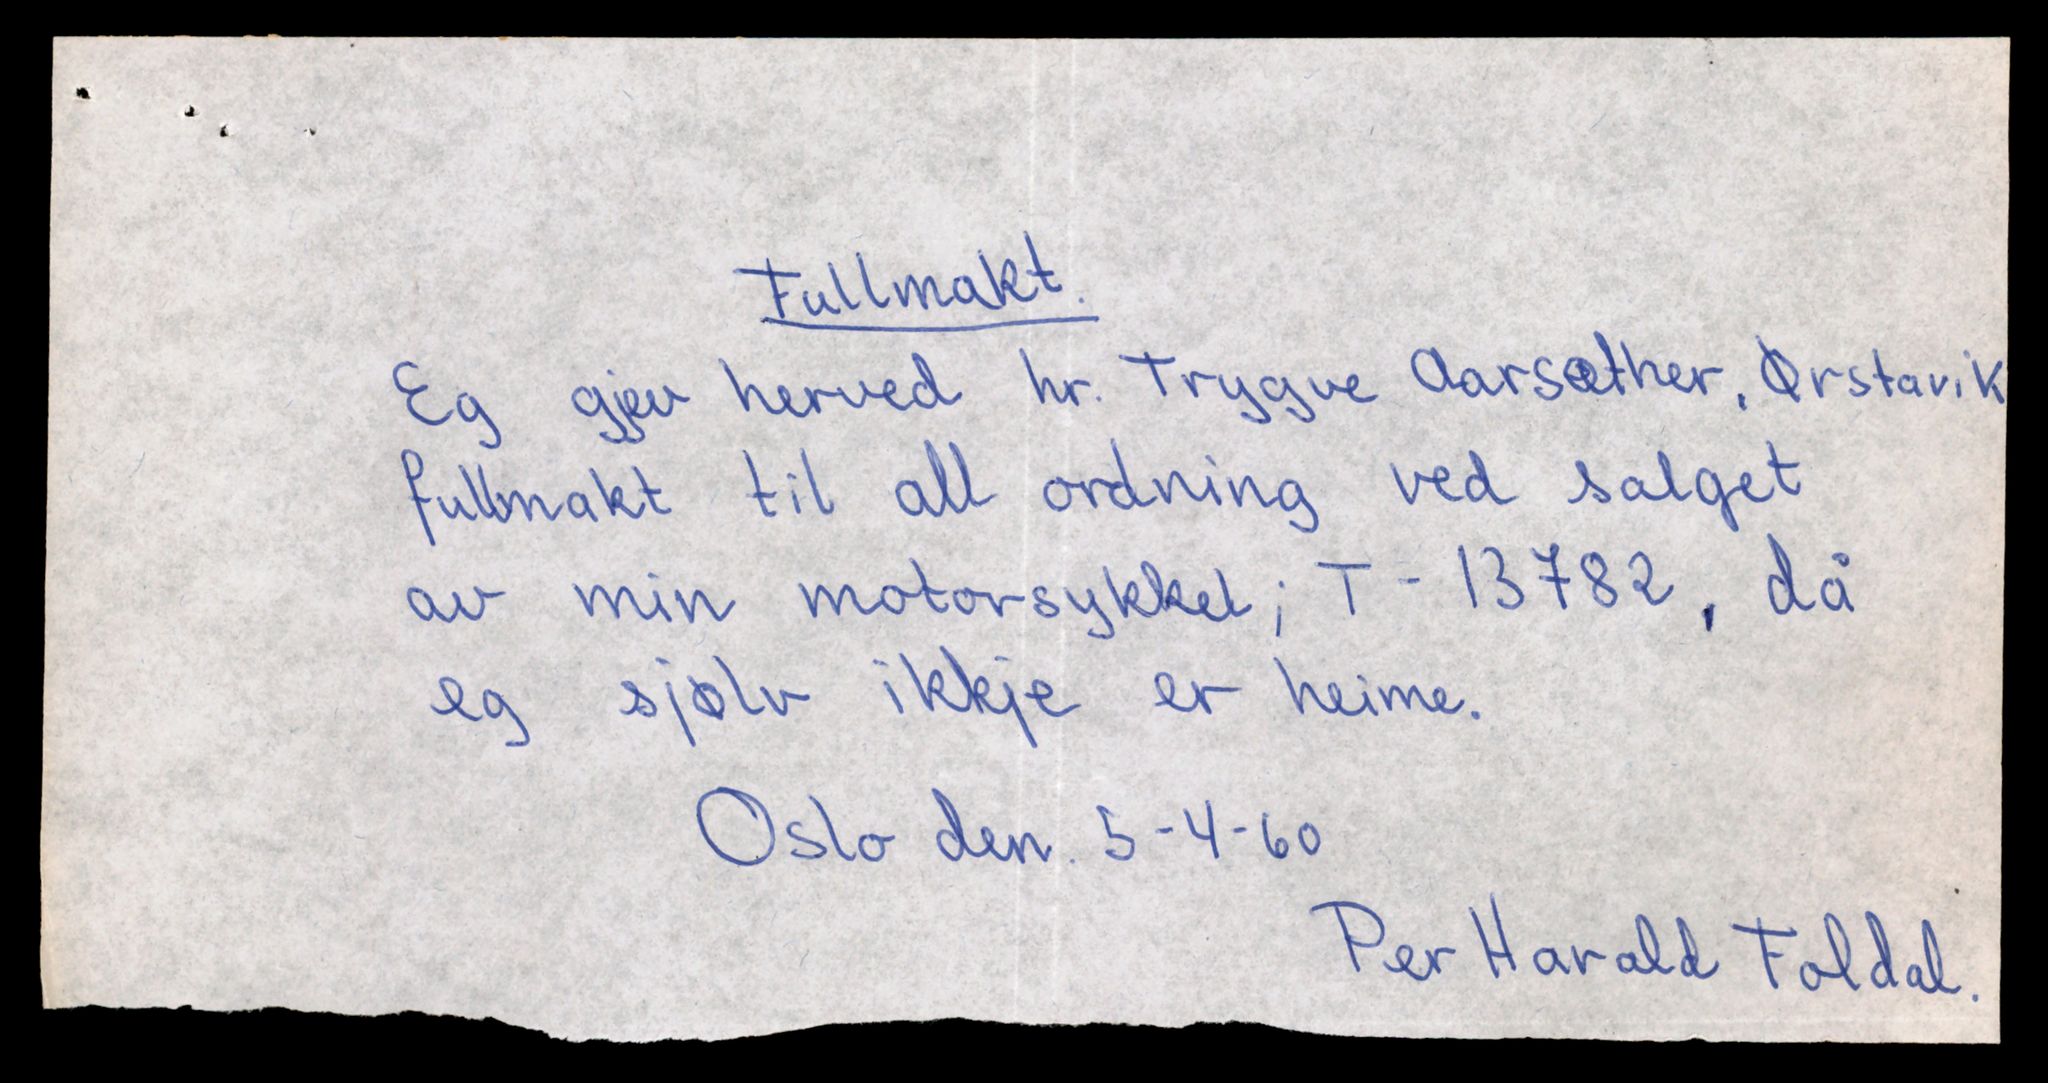 Fullmakt.
Eg gjev herved hr. Trygve Aarsæther, Ørstavik
fullmakt til all ordning ved salget
av min motorsykkel; T - 13782, då
eg sjølv ikkje er heime.
Oslo den. 5-4-60
Per Harald Foldal.